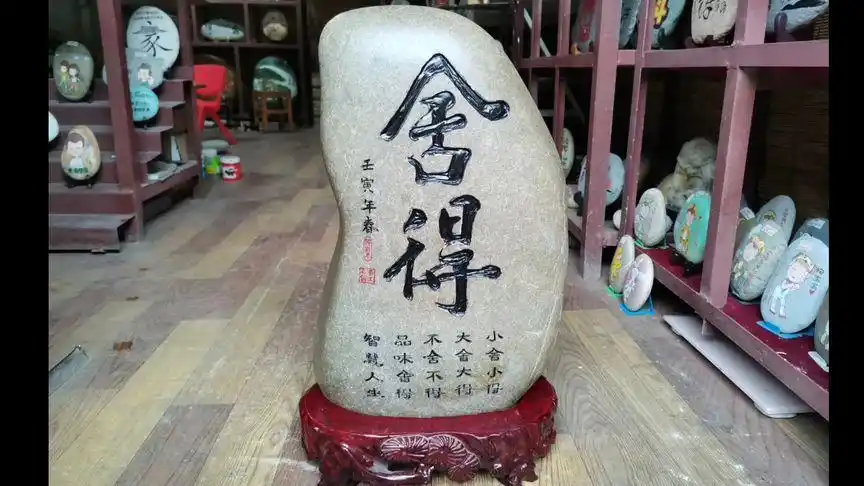 舍得
壬寅年春
小舍小得
大舍大得
不舍不得
品味舍得
智慧人生
家